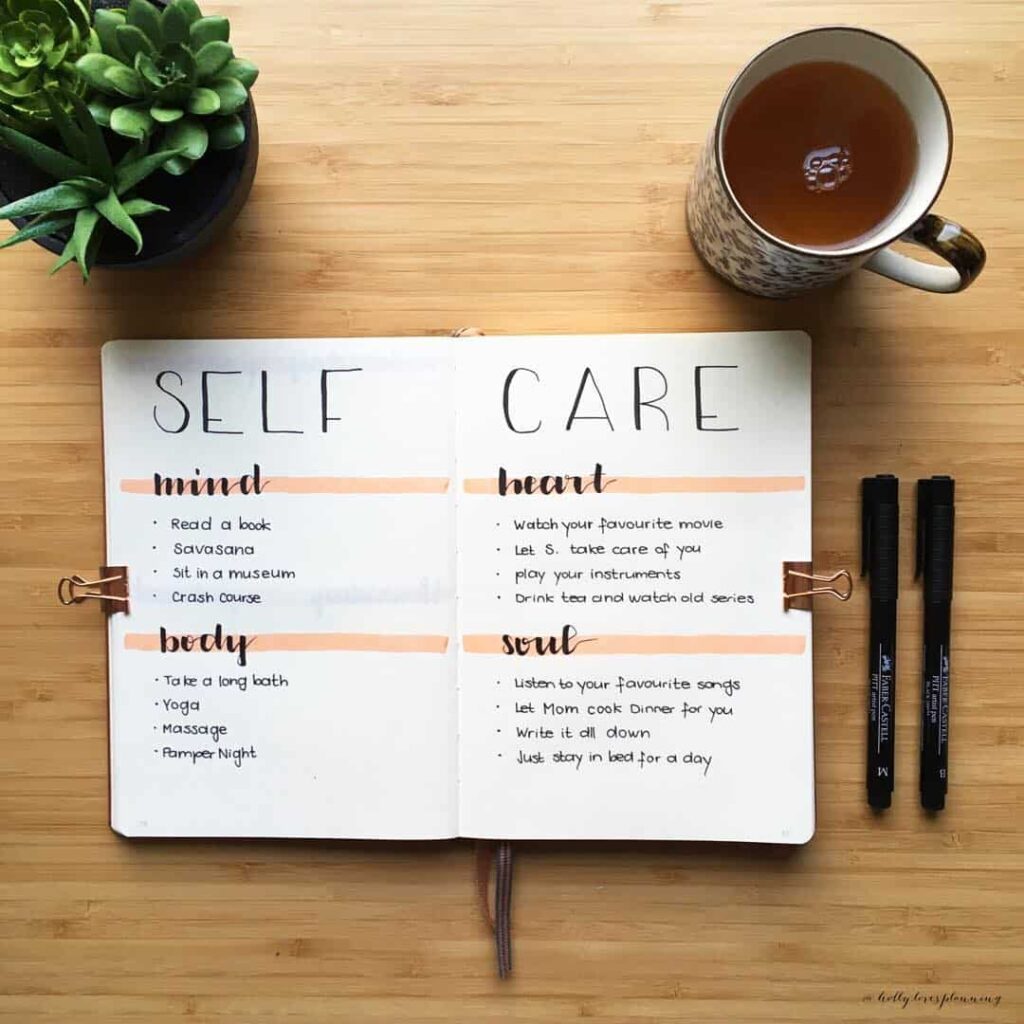 SELF
mind
• Read a book
• Savasana
• Sit in a museum
• Crash Course
body
• Take a long bath
• Yoga
• Massage
• Pamper Night
CARE
heart
• Watch your favourite movie
• Let S. take care of you
• play your instruments
• Drink tea and watch old series
soul
• Listen to your favourite songs
• Let Mom cook Dinner for you
• Write it all down
• Just stay in bed for a day
FABER-CASTELL
PITT artist pen
M
FABER-CASTELL
PITT artist pen
B
@hollylovesplanning